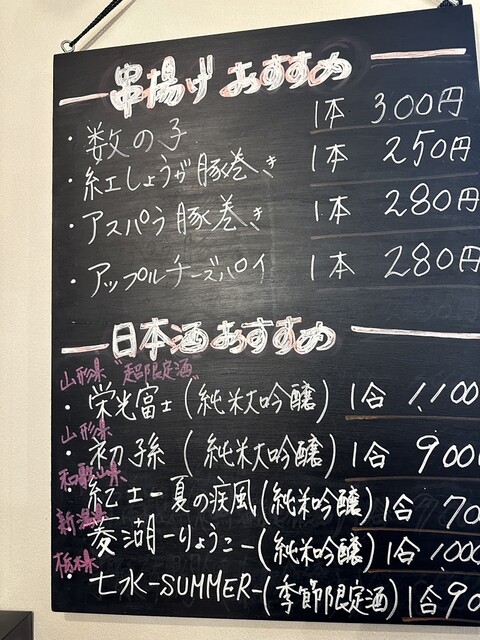 串揚げ おすすめ
・数の子 1本 300円
・紅しょうが豚巻き 1本 250円
・アスパラ豚巻き 1本 280円
・アップルチーズパイ 1本 280円
日本酒 おすすめ
山形県 "超限定酒"
・栄光冨士(純米大吟醸) 1合 1,100
山形県
・初孫(純米大吟醸) 1合 900
和歌山県
・紀土-夏の疾風(純米吟醸) 1合 70
新潟県
・菱湖-りょうこ-(純米吟醸) 1合 1,000
栃木県
・七水-SUMMER-(季節限定酒) 1合 90